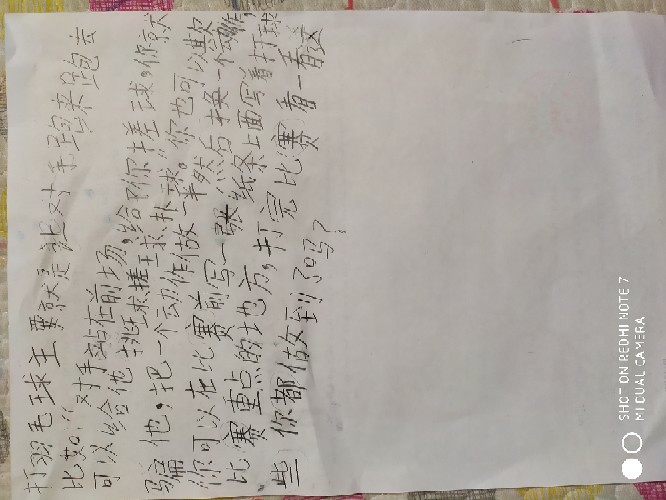 打羽毛球主要就是让对手跑来跑去
比如:“对手站在前场,给你搓球,你就
可以给他挑球、搓球、扑球。你也可以欺
骗他,把一个动作做一半然后换一个动作,
你可以在比赛前写一张纸条上面写着打球
比赛重点的地方,打完比赛看一看这
些你都做到了吗?
SHOT ON REDMI NOTE 7
MI DUAL CAMERA